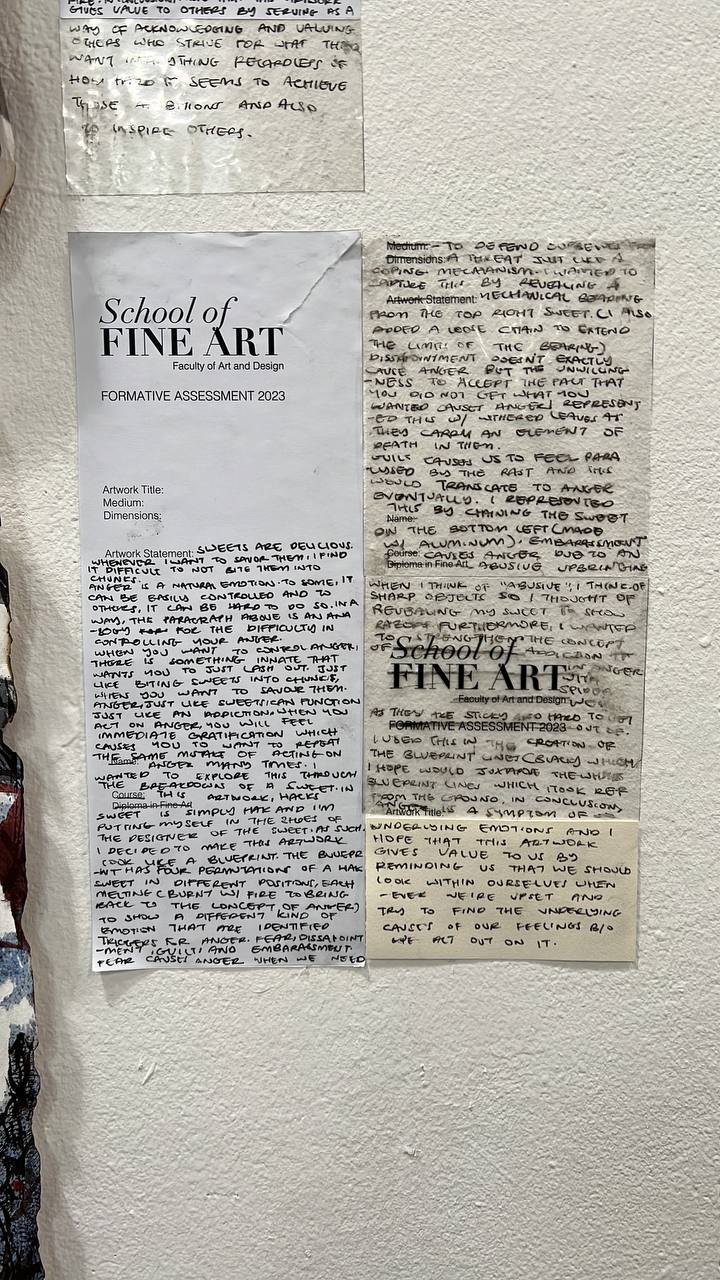 GIVES VALUE TO OTHERS BY SERVING AS A
WAY OF ACKNOWLEDGING AND VALUING
OTHERS WHO STRIVE FOR WHAT THEY
WANT IN ANYTHING REGARDLESS OF
HOW HARD IT SEEMS TO ACHIEVE
THOSE AMBITIONS AND ALSO
TO INSPIRE OTHERS.
School of
FINE ART
Faculty of Art and Design
FORMATIVE ASSESSMENT 2023
Artwork Title:
Medium:
Dimensions:
Artwork Statement: SWEETS ARE DELICIOUS.
WHENEVER I WANT TO SAVOR THEM, I FIND
IT DIFFICULT TO NOT BITE THEM INTO
CHUNKS.
ANGER IS A NATURAL EMOTION. TO SOME, IT
CAN BE EASILY CONTROLLED AND TO
OTHERS, IT CAN BE HARD TO DO SO. IN A
WAY, THE PARAGRAPH ABOVE IS AN ANA
-LOGY FOR THE DIFFICULTY IN
CONTROLLING YOUR ANGER.
WHEN YOU WANT TO CONTROL ANGER,
THERE IS SOMETHING INNATE THAT
WANTS YOU TO JUST LASH OUT. JUST
LIKE BITING SWEETS INTO CHUNKS,
WHEN YOU WANT TO SAVOUR THEM.
ANGER, JUST LIKE SWEETS, CAN FUNCTION
JUST LIKE AN ADDICTION. WHEN YOU
ACT ON ANGER, YOU WILL FEEL
IMMEDIATE GRATIFICATION WHICH
CAUSES YOU TO WANT TO REPEAT
THE SAME MISTAKE OF ACTING ON
Name: ANGER MANY TIMES. I
WANTED TO EXPLORE THIS THROUGH
THE BREAKDOWN OF A SWEET. IN
Course: THIS ARTWORK, HACKS
Diploma in Fine Art
SWEET IS SIMPLY HAK AND I'M
PUTTING MYSELF IN THE SHOES OF
THE DESIGNER OF THE SWEET. AS SUCH,
I DECIDED TO MAKE THIS ARTWORK
LOOK LIKE A BLUEPRINT. THE BLUEPR
-INT HAS FOUR PERMUTATIONS OF A HAK
SWEET IN DIFFERENT POSITIONS, EACH
MELTING (BURNT W/ FIRE TO BRING
BACK TO THE CONCEPT OF ANGER)
TO SHOW A DIFFERENT KIND OF
EMOTION THAT ARE IDENTIFIED
TRIGGERS FOR ANGER. FEAR, DISSAPOINT
-MENT, GUILT AND EMBARASSMENT.
FEAR CAUSES ANGER WHEN WE NEED
Medium: - TO DEFEND OURSELVES
Dimensions: A THREAT JUST LIKE A
COPING MECHANISM. I WANTED TO
CAPTURE THIS BY REVEALING A
Artwork Statement: MECHANICAL BEARING
FROM THE TOP RIGHT SWEET. (I ALSO
ADDED A LOOSE CHAIN TO EXTEND
THE LIMITS OF THE BEARING)
DISSAPOINTMENT DOESN'T EXACTLY
CAUSE ANGER BUT THE UNWILLING
-NESS TO ACCEPT THE FACT THAT
YOU DID NOT GET WHAT YOU
WANTED CAUSES ANGER. I REPRESENT
-ED THIS W/ WITHERED LEAVES AS
THEY CARRY AN ELEMENT OF
DEATH IN THEM.
GUILT CAUSES US TO FEEL PARA
-LYSED BY THE PAST AND THIS
WOULD TRANSLATE TO ANGER
EVENTUALLY. I REPRESENTED
THIS BY CHAINING THE SWEET
Name:
ON THE BOTTOM LEFT (MADE
W/ ALUMINUM). EMBARASSMENT
Course: CAUSES ANGER DUE TO AN
Diploma in Fine Art ABUSIVE UPBRINGING
WHEN I THINK OF "ABUSIVE", I THINK OF
SHARP OBJECTS SO I THOUGHT OF
REVEALING MY SWEET TO SHOW
RAZORS. FURTHERMORE, I WANTED
TO STRENGTHEN THE CONCEPT
OF ADDICTION
School of
FINE ART
IN ANGER
Faculty of Art and Design
AS THEY ARE STICKY SO HARD TO GET
FORMATIVE ASSESSMENT 2023 OUT OF.
I USED THIS IN THE CREATION OF
THE BLUEPRINT LINES (BLACK) WHICH
I HOPE WOULD JUXTAPOSE THE WHITE
BLUEPRINT LINES WHICH I TOOK REF
FROM THE GROUND. IN CONCLUSION,
ANGER IS A SYMPTOM OF
Artwork Title:
UNDERLYING EMOTIONS AND I
HOPE THAT THIS ARTWORK
GIVES VALUE TO US BY
REMINDING US THAT WE SHOULD
LOOK WITHIN OURSELVES WHEN
-EVER WE'RE UPSET AND
TRY TO FIND THE UNDERLYING
CAUSES OF OUR FEELINGS B/O
WE ACT OUT ON IT.